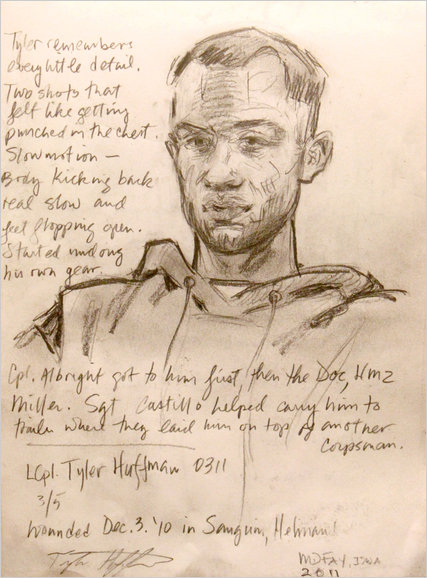 Tyler remembers
every little detail.
Two shots that
felt like getting
punched in the chest.
Slow motion —
Body kicking back
real slow and
feet flopping open.
Started undoing
his own gear.
Cpl. Albright got to him first, then the Doc, HM2
Miller. Sgt Castillo helped carry him to
where they laid him on top of another
Corpsman.
LCpl. Tyler Huffman 0311
3/5
Wounded Dec. 3. '10 in Sangin, Helmand
Tyler Huffman
MDFAY, IWA
2011